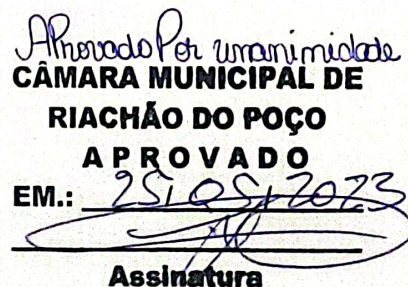 Aprovado Por unanimidade
CÂMARA MUNICIPAL DE
RIACHÃO DO POÇO
APROVADO
EM.: 25/05/2023
Assinatura